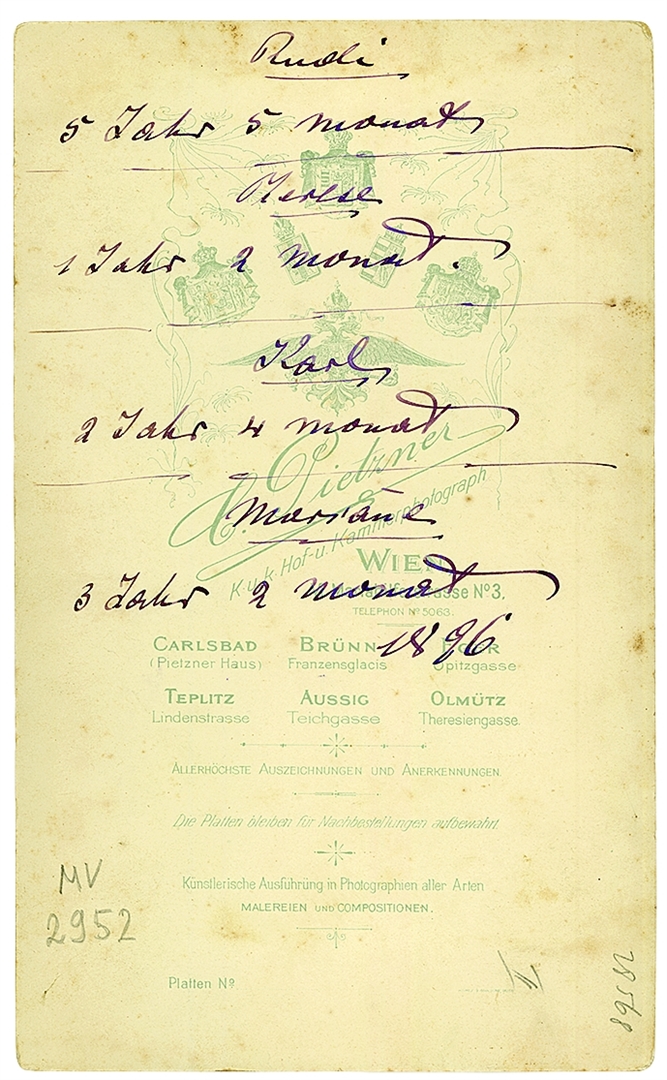 Rudi
5 Jahr 5 monat
Therese
1 Jahr 2 monat.
Karl
2 Jahr 4 monat
C. Pietzner
Mariane
K.u.k. Hof-u. Kammerphotograph
WIEN
3 Jahr 2 monat
Nº3.
TELEPHON Nº 5063.
1896
CARLSBAD BRÜNN EGER
(Pietzner Haus) Franzensglacis Opitzgasse
TEPLITZ AUSSIG OLMÜTZ
Lindenstrasse Teichgasse Theresiengasse.
ALLERHÖCHSTE AUSZEICHNUNGEN UND ANERKENNUNGEN.
Die Platten bleiben für Nachbestellungen aufbewahrt.
Künstlerische Ausführung in Photographien aller Arten
MALEREIEN UND COMPOSITIONEN.
MV
2952
Platten Nº
II